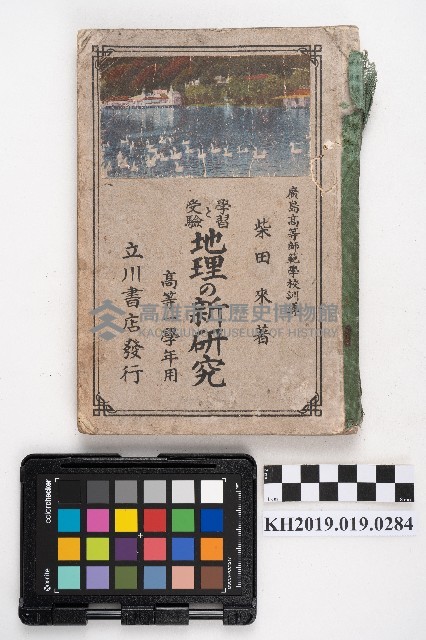 廣島高等師範學校訓導
柴田來著
學習
と
受驗
地理の新研究
高等一學年用
立川書店發行
高雄市立歷史博物館
KAOHSIUNG MUSEUM OF HISTORY
colorchecker
x-rite
KH2019.019.0284